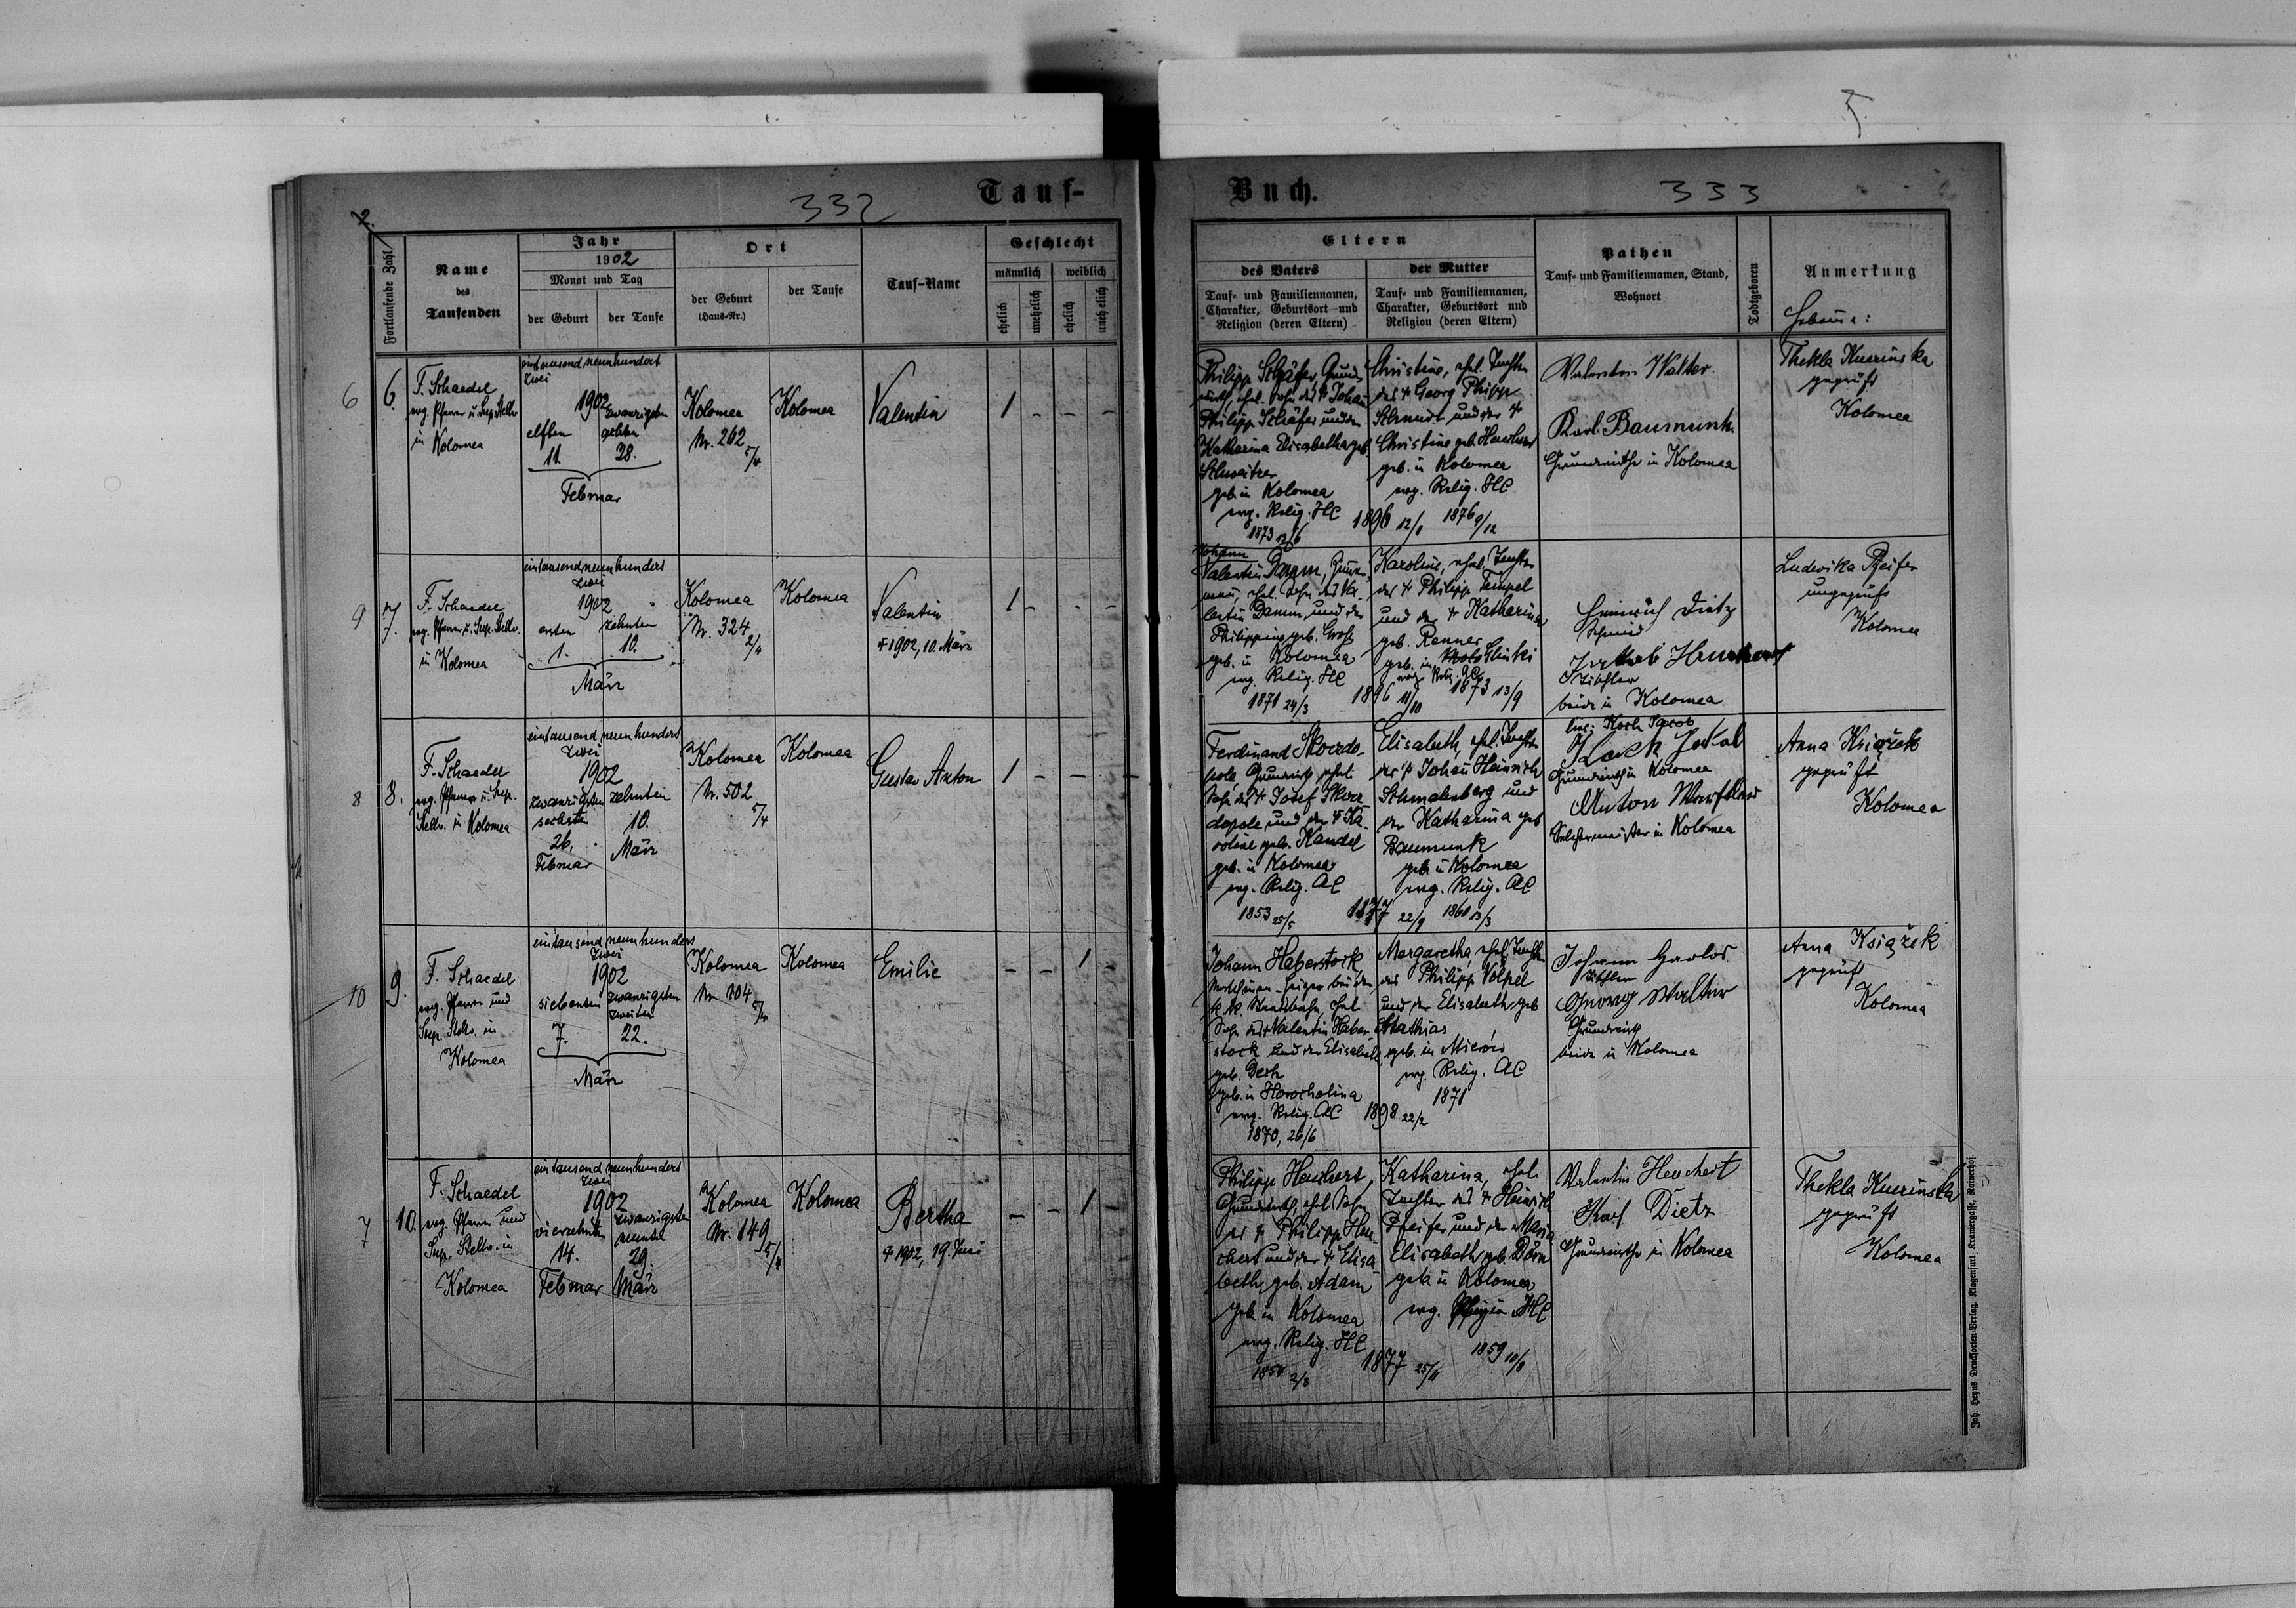 5.
Tauf-
Buch.
332
333
2.
Fortlaufende Zahl
Name
des
Taufenden
Jahr
1902
Monat und Tag
der Geburt
der Taufe
Ort
der Geburt
(Haus-Nr.)
der Taufe
Tauf-Name
Geschlecht
männlich
weiblich
ehelich
unehelich
ehelich
unehelich
Eltern
des Vaters
Tauf- und Familiennamen,
Charakter, Geburtsort und
Religion (deren Eltern)
der Mutter
Tauf- und Familiennamen,
Charakter, Geburtsort und
Religion (deren Eltern)
Pathen
Tauf- und Familiennamen, Stand,
Wohnort
Todtgeboren
Anmerkung
Hebame:
6
6.
F. Schaedel
evg. Pfarrer u. Sup. Stellv.
in Kolomea
eintausend neunhundert
zwei
1902
elften
11.
zwanzigsten
achten
28.
Februar
Kolomea
Nr. 262
5/4
Kolomea
Valentin
1 - - -
Philipp Schäfer, Grund-
wirth, ehel. Sohn des † Johan
Philipp Schäfer und der
Katharina Elisabetha geb.
Schweitzer
geb. in Kolomea
evg. Relig. HC
1873 13/6
1896 12/1
Christine, ehel. Tochter
des † Georg Philipp
Schmidt und der †
Christine geb. Heuchert
geb. in Kolomea
evg. Relig. HC
1876 9/12
Valentin Walter
Karl Baumunk
Grundwirthe in Kolomea
Thekla Kuerinska
geprüft
Kolomea
9
7.
F. Schaedel
evg. Pfarrer u. Sup. Stellv.
in Kolomea
eintausend neunhundert
zwei
1902
ersten
1.
zehnten
10.
März
Kolomea
Nr. 324
2/4
Kolomea
Valentin
† 1902, 10. März
1 - - -
Johann
Valentin Damm,
ehel. Sohn des Va-
lentin Damm und der
Philippine geb. Groß
geb. in Kolomea
evg. Relig. HC
1871 24/3
1896 11/10
Karoline, ehel. Tochter
des † Philipp Tempel
und der † Katharina
geb. Renner
geb. in Slinki
evg. Relig. AC
1873 13/9
Heinrich Dietz
Schmied
Jakob Heuchert
Tischler
beide in Kolomea
Ludwika Pfeifer
ungeprüft
Kolomea
8
8.
F. Schaedel
evg. Pfarrer u. Sup.
Stellv. in Kolomea
eintausend neunhundert
zwei
1902
zwanzigsten
sechsten
26.
Februar
zehnten
10.
März
Kolomea
Nr. 502
5/4
Kolomea
Gustav Anton
1 - - -
Ferdinand Skordo-
pole Grundwirth, ehel.
Sohn des † Josef Skor-
dopole und der † Ka-
roline geb. Kandel
geb. in Kolomea
evg. Relig. AC
1853 25/5
1877 22/9
Elisabeth, ehel. Tochter
des † Johan Heinrich
Schmalenberg und
der Katharina geb.
Baumunk
geb. in Kolomea
evg. Relig. AC
1861 13/3
Koch Jacob
Grundwirth in Kolomea
Anton
in Kolomea
Anna Książek
geprüft
Kolomea
10
9.
F. Schaedel
evg. Pfarrer und
Sup. Stellv. in
Kolomea
eintausend neunhundert
zwei
1902
siebenten
7.
zwanzigsten
zweiten
22.
März
Kolomea
Nr. 104
5/4
Kolomea
Emilie
- - 1 -
Johann Haberstock
Maschinen-Heizer bei der
k. k. Staatsbahn, ehel.
Sohn des † Valentin Haber-
stock und der Elisabeth
geb. Desh
geb. in Horocholina
evg. Relig. AC
1870, 26/6
1898 22/2
Margaretha, ehel. Tochter
des Philipp Völpel
und der Elisabeth geb.
Mathias
geb. in
evg. Relig. AC
1871
Johann
Tischler
Georg Walter
Grundwirth
beide in Kolomea
Anna Książek
geprüft
Kolomea
7
10.
F. Schaedel
evg. Pfarrer und
Sup. Stellv. in
Kolomea
eintausend neunhundert
zwei
1902
vierzehnten
14.
Februar
zwanzigsten
neunten
29.
März
Kolomea
Nr. 149
5/4
Kolomea
Bertha
† 1902, 19. Juni
- - 1 -
Philipp Heuchert,
Grundwirth, ehel. Sohn
des † Philipp Heu-
chert und der † Elisa-
beth, geb. Adam
geb. in Kolomea
evg. Relig. HC
2/3
1877 25/11
Katharina, ehel.
Tochter des † Heinrich
Pfeifer und der Maria
Elisabeth geb. Dörn
geb. in Kolomea
evg. Religion HC
1859 10/8
Valentin Heuchert
Karl Dietz
Grundwirthe in Kolomea
Thekla Kuerinska
geprüft
Kolomea
Joh. Heyns Drucksorten-Verlag, Klagenfurt, Kramergasse, Rainerhof.